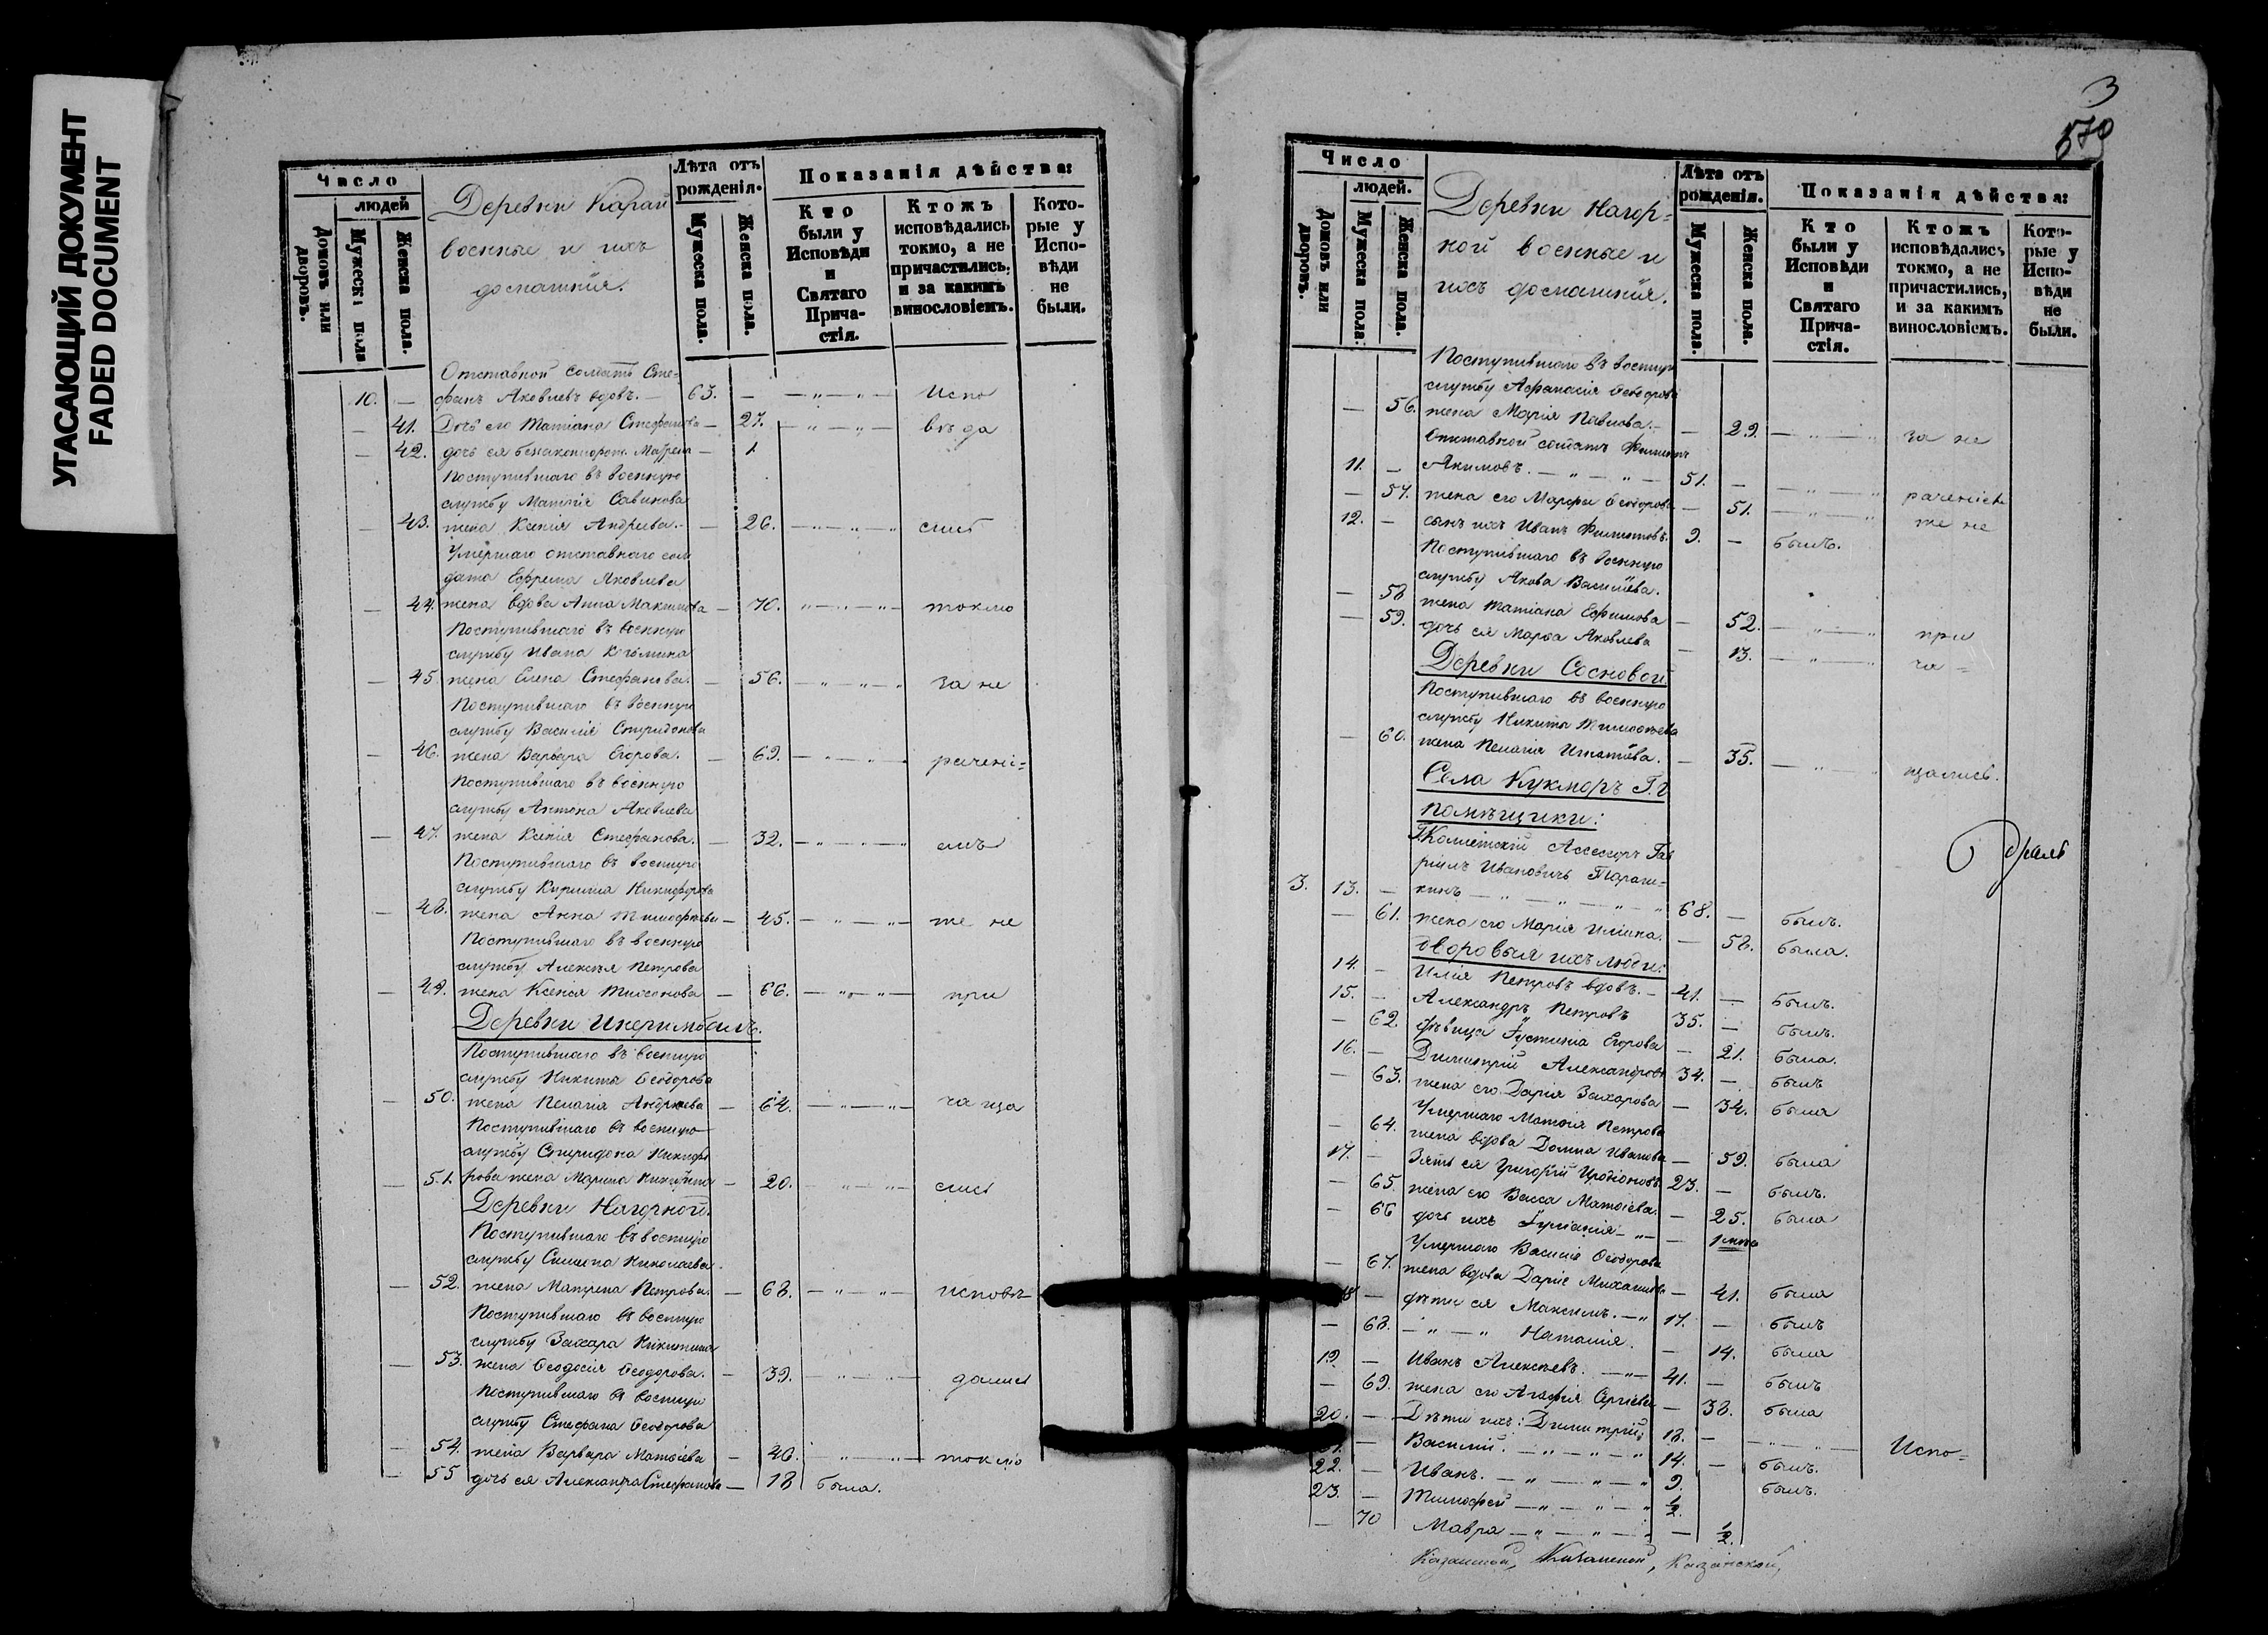 УГАСАЮЩИЙ ДОКУМЕНТ
FADED DOCUMENT
Число
людей
Домовъ или дворовъ.
Мужеска пола
Женска пола.
Деревни Карай
военные и ихъ
домашнія.
Лѣта отъ рожденія.
Мужеска пола.
Женска пола.
Показанія дѣйства:
Кто были у Исповѣди и Святаго Прича-стія.
Ктожъ исповѣдались токмо, а не причастились, и за какимъ винословіемъ.
Кото-рые у Испо-вѣди не были.
Отставной солдатъ Сте=
10. — фанъ Яковлевъ вдовъ. — 63. — — „ — „ — Испо
— 41. Дочь его Татіана Стефанова — 27. — „ — „ — вѣда
— 42. дочь ея беззаконнорож. Мавра — 1
Поступившаго въ военную
службу Матвія Савинова
— 43. жена Ксенія Андреева. — 26. — „ — „ — лись
Умершаго отставнаго сол
дата Ефрема Яковлева
— 44. жена вдова Анна Максимова — 70. „ — „ — „ — токмо
Поступившаго въ военную
службу Ивана Козьмина
— 45. жена Елена Стефанова. — 56. — „ — „ — „ за не
Поступившаго въ военную
службу Василія Спиридонова
— 46. жена Варвара Егорова. — 69. — „ — „ — рачені=
Поступившаго въ военную
службу Антона Яковлева
— 47. жена Ксенія Стефанова. — 32. — „ — „ — „ емъ
Поступившаго въ военную
службу Кирилла Никифорова
— 48. жена Анна Тимофѣева — 45. — „ — „ — же не
Поступившаго въ военную
службу Алексѣя Петрова
— 49. жена Ксенія Тихонова — 66. — „ — „ — при
Деревни Инеримбашъ.
Поступившаго въ военную
службу Никиты Ѳеодорова
— 50. жена Пелагія Андреева — 64. — „ — „ — ча ща
Поступившаго въ военную
службу Спиридона Никифо
— 51. рова жена Марина Никитина — 20. — „ — „ — лись
Деревни Нагорной.
Поступившаго въ военную
службу Николаева.
— 52. жена Матрена Петрова. — 68. — „ — „ — исповѣ
Поступившаго въ военную
службу Захара Никитина
— 53. жена Ѳеодосія Ѳеодорова. — 39. — „ — „ — дались
Поступившаго въ военную
службу Стефана Ѳеодорова
— 54. жена Варвара Матвіева — 40. — „ — „ — токмо
— 55 дочь ея Александра Стефанова — 18 была.
3
570
Число
людей.
Домовъ или дворовъ.
Мужеска пола.
Женска пола.
Деревни Нагор=
ной военные и
ихъ домашнія.
Лѣта отъ рожденія.
Мужеска пола.
Женска пола.
Показанія дѣйства:
Кто были у Исповѣди и Святаго Прича-стія.
Ктожъ исповѣдались токмо, а не причастились, и за какимъ винословіемъ.
Кото-рые у Испо-вѣди не были.
Поступившаго въ военную
службу Аѳанасія Ѳеодорова
— 56. жена Марія Павлова. — 29. — „ — „ за не
Отставной солдатъ Филиппъ
11. — Акимовъ. — „ — „ — 51. — — „ — „ раченіемъ
— 57. жена его Марфа Ѳеодорова — 51. — „ — „ же не
12. — сынъ ихъ Иванъ Филипповъ. 9. — былъ.
Поступившаго въ военную
службу Якова Васильева.
— 58 жена Татіана Ефимова — 52. — „ — „ при
— 59. дочь ея Марѳа Яковлева — 13. — „ — „ ча =
Деревни Сосновой
Поступившаго въ военную
службу Никиты Тимоѳеева
— 60. жена Пелагія Игнатьева. — 35. — „ — „ щались.
Села Кукморъ Г.г
помѣщики:
Г. Коллежскій Ассесоръ Гав
ріилъ Ивановичъ
3. 13. — кинъ — „ — „ — „ — „ 68. — былъ.
— 61. жена его Марія Ильина. — 58. была.
дворовыя ихъ люди:
14. — Илія Петровъ вдовъ. — 41. — былъ.
15. — Александръ Петровъ 35. — былъ.
— 62. дѣвица Іустинія Егорова — 21. была.
16. — Димитрій Александровъ 34. — былъ
— 63. жена его Дарія Захарова — 34. была
Умершаго Матвія Петрова
— 64. жена вдова Домна Иванова — 59. была
17. — Зять ея Григорій Иродіоновъ 23. — былъ.
— 65. жена его Васса Матвіева. — 25. была
— 66 дочь ихъ Іуліанія — „ — —
Умершаго Василія Ѳеодорова
— 67. жена вдова Дарія Михайлова — 41. была
18 — дѣти ея Максимъ. — „ 17. — былъ
— 68. — „ — „ Наталія. — 14. была
19. — Иванъ Алексѣевъ. — „ — 41. — былъ
— 69. жена его Агафія Сергіева — 38. была
20. — Дѣти ихъ: Димитрій, 18. — — „ — „ — Испо=
21. — Василій. — „ — „ — „ 14. — былъ.
22. — Иванъ. — „ — „ — „ 9. былъ.
23. — Тимофей — „ — „ — „ ½
— 70 Мавра — „ — „ — „ — ½.
Казанской, Казанской, Казанской,